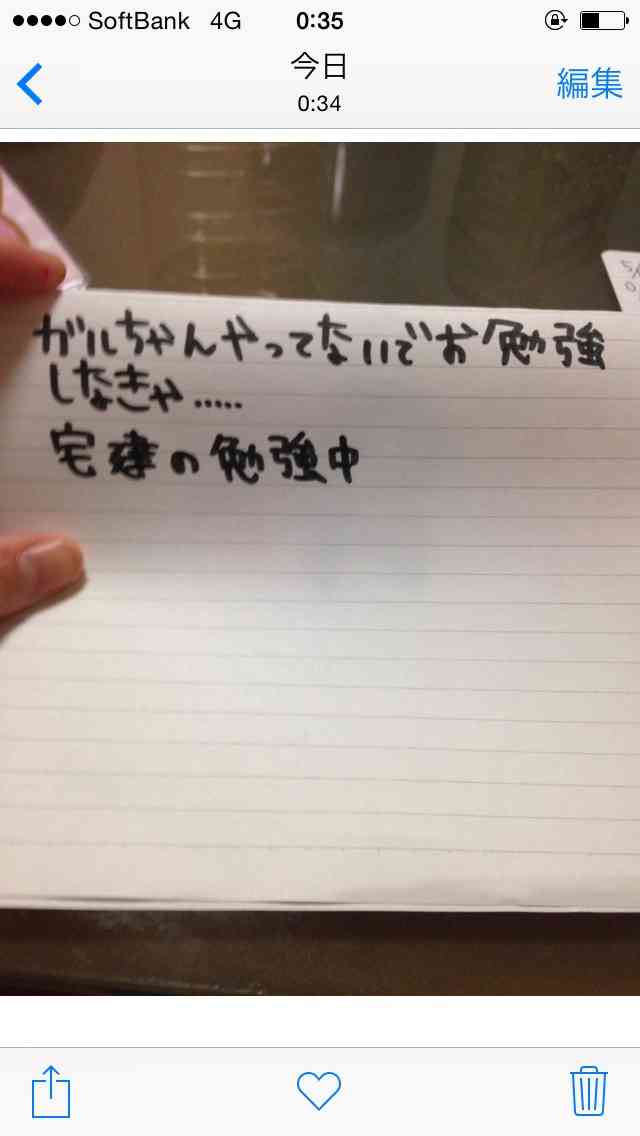 SoftBank 4G 0:35
今日
0:34
編集
ガルちゃんやってないでお勉強
しなきゃ.....
宅建の勉強中